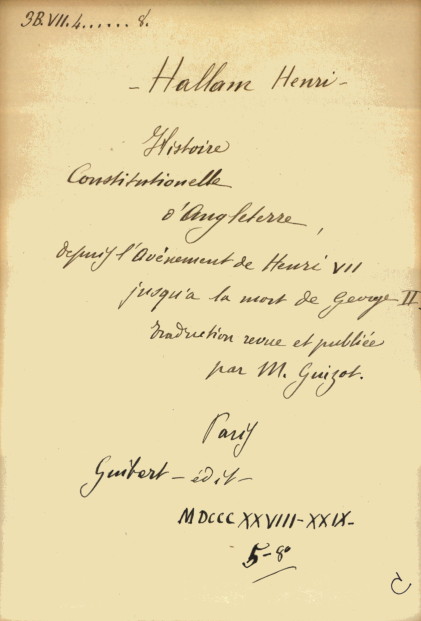 3B.VII.4......8.
- Hallam Henri -
Histoire
Constitutionelle
d'Angleterre,
depuis l'Avènement de Henri VII
jusqu'a la mort de George II.
traduction revue et publiée
par M. Guizot.
Paris
Guibert - édit -
MDCCCXXVIII-XXIX-
5-8º
C